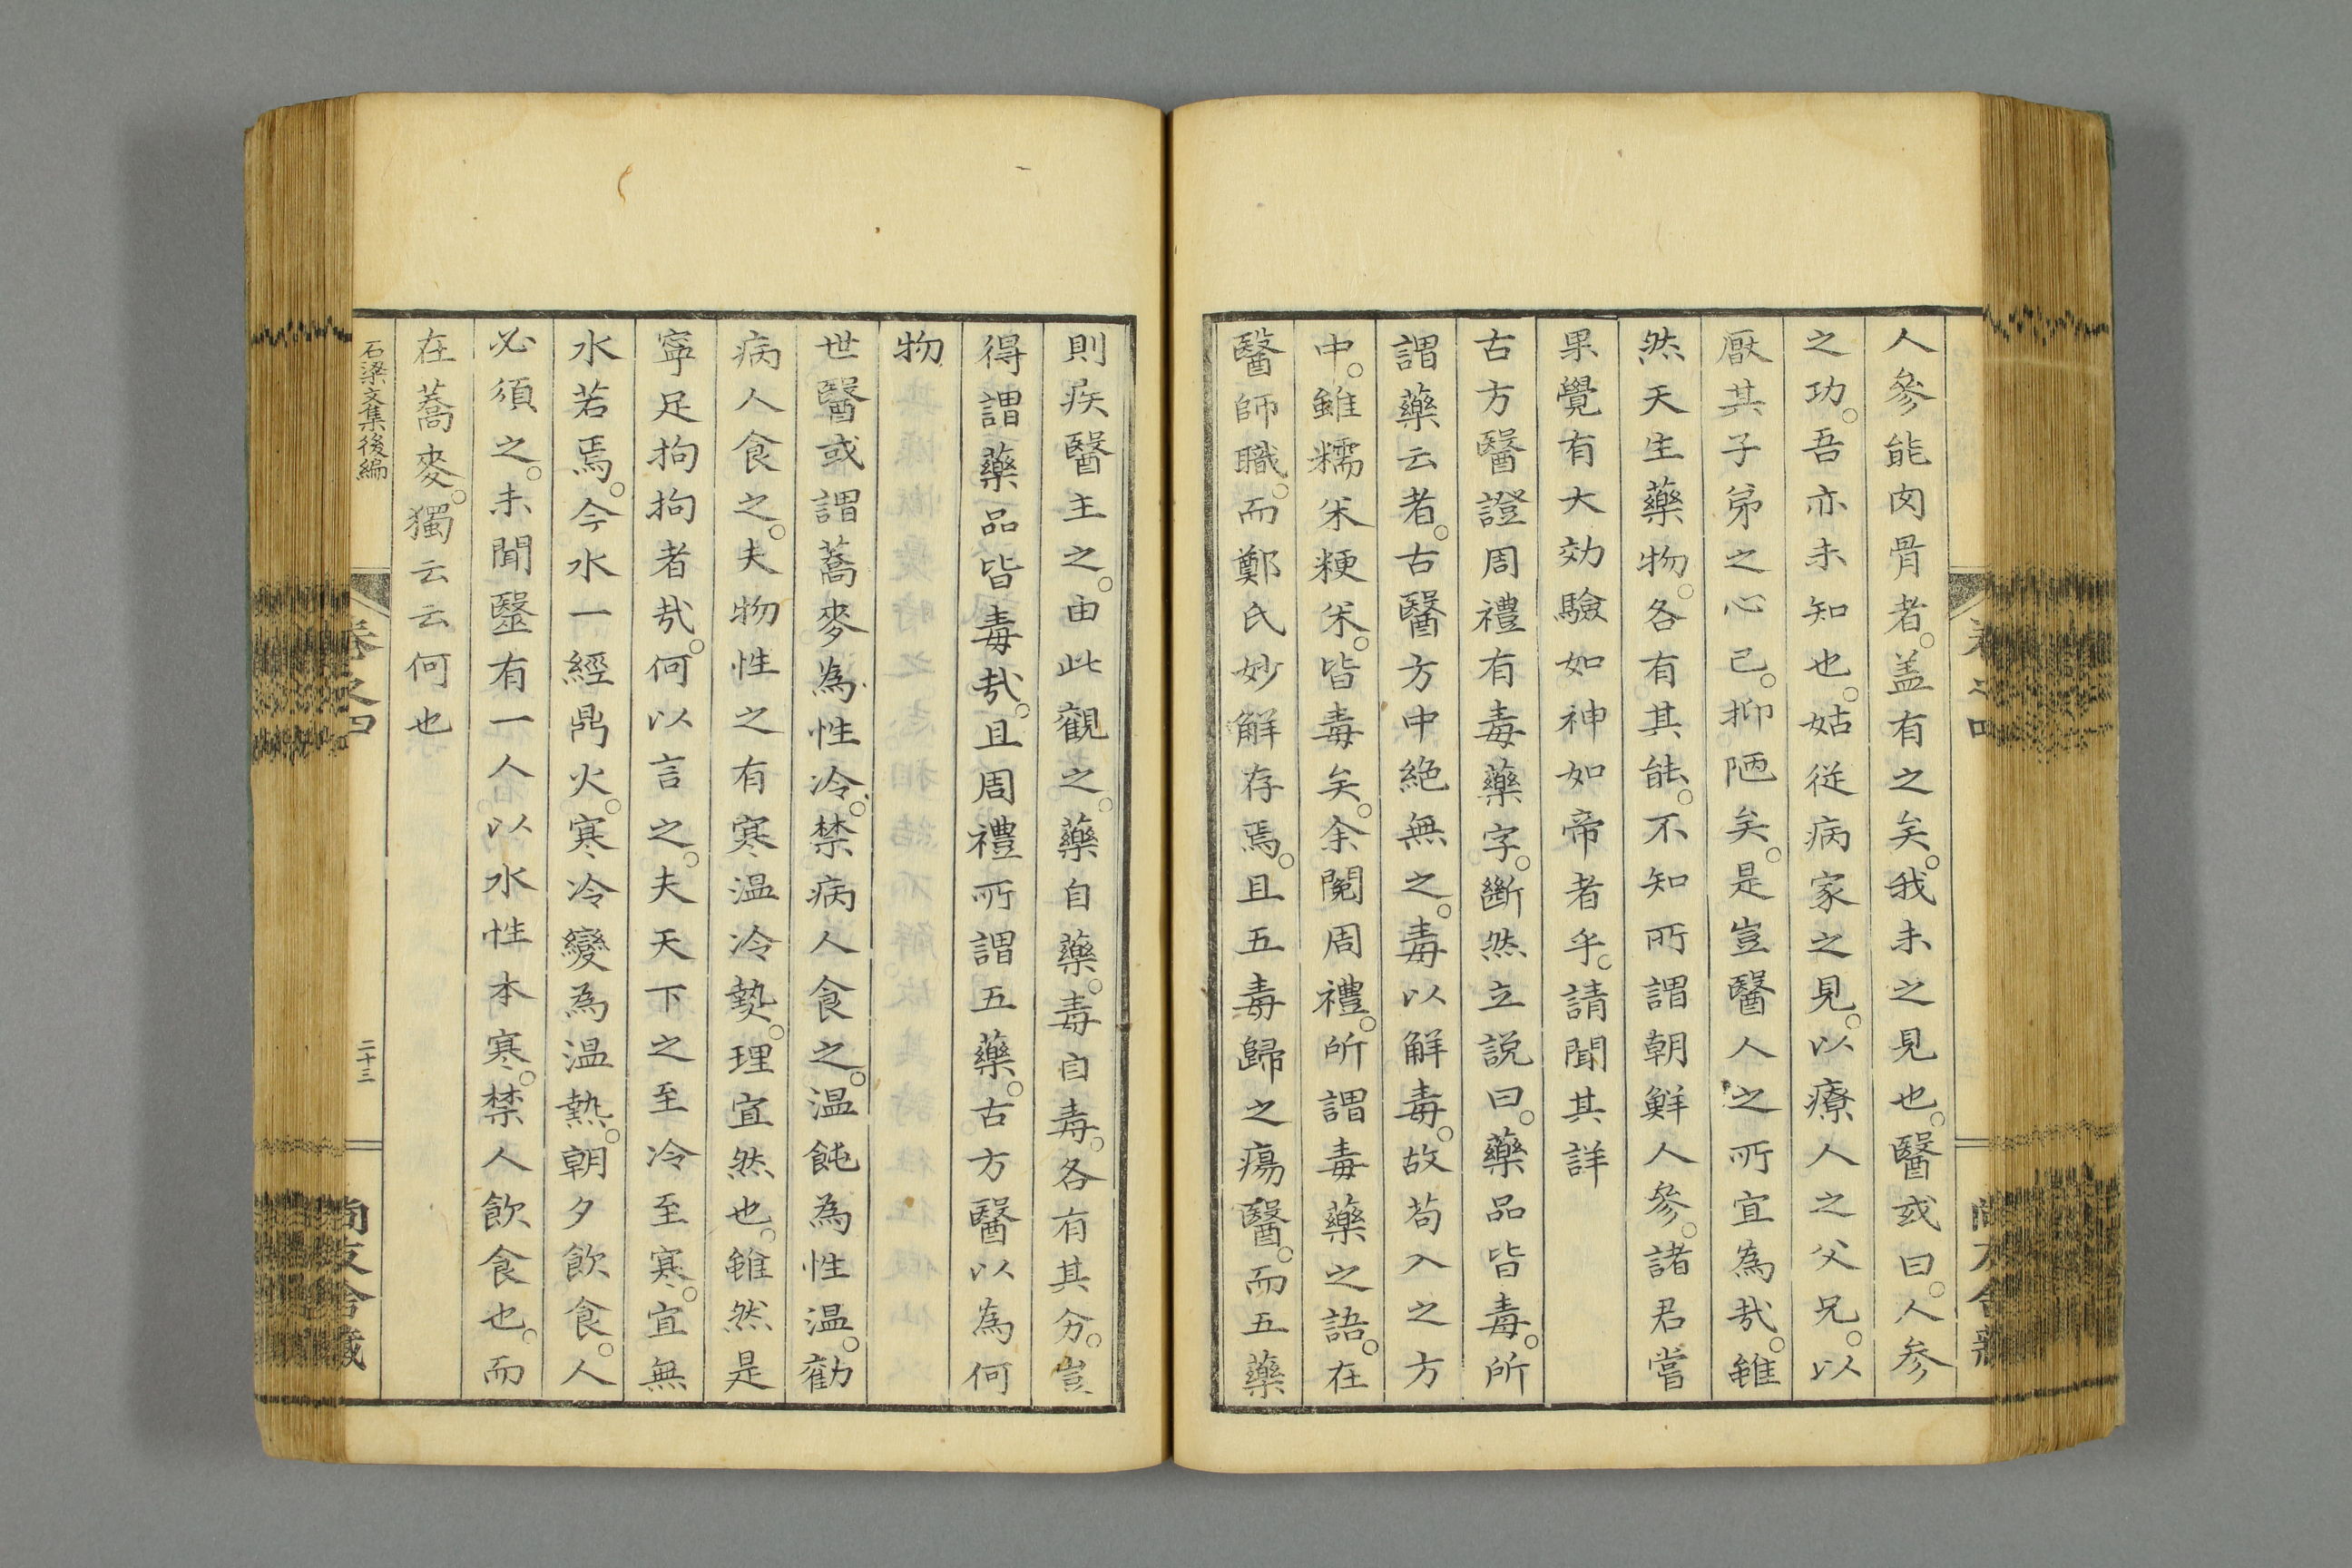 人參能肉骨者。盖有之矣。我未之見也。醫或曰。人参
之功。吾亦未知也。姑従病家之見。以療人之父兄。以
厭其子弟之心已。抑陋矣。是豈醫人之所宜為㢤。雖
然天生藥物。各有其能。不知所謂朝鮮人參。諸君嘗
果覺有大効驗如神如帝者乎。請聞其詳
古方醫證周禮有毒藥字。斷然立説曰。藥品皆毒。所
謂藥云者。古醫方中絶無之。毒以解毒。故苟入之方
中。雖糯米粳米。皆毒矣。余閱周禮。所謂毒藥之語。在
醫師職。而鄭氏妙解存焉。且五毒歸之瘍醫。而五藥
則疾醫主之。由此觀之。藥自藥。毒自毒。各有其分。豈
得謂藥品皆毒㢤。且周禮所謂五藥。古方醫以為何
物
世醫或謂蕎麥為性冷。禁病人食之。温飩為性温。勸
病人食之。夫物性之有寒温冷熱。理宜然也。雖然是
寧足拘拘者㢤。何以言之。夫天下之至冷至寒。宜無
水若焉。今水一經鼎火。寒冷變為温熱。朝夕飲食。人
必須之。未聞毉有一人以水性本寒。禁人飲食也。而
在蕎麥。獨云云何也
石梁文集後編
卷之四
二十三